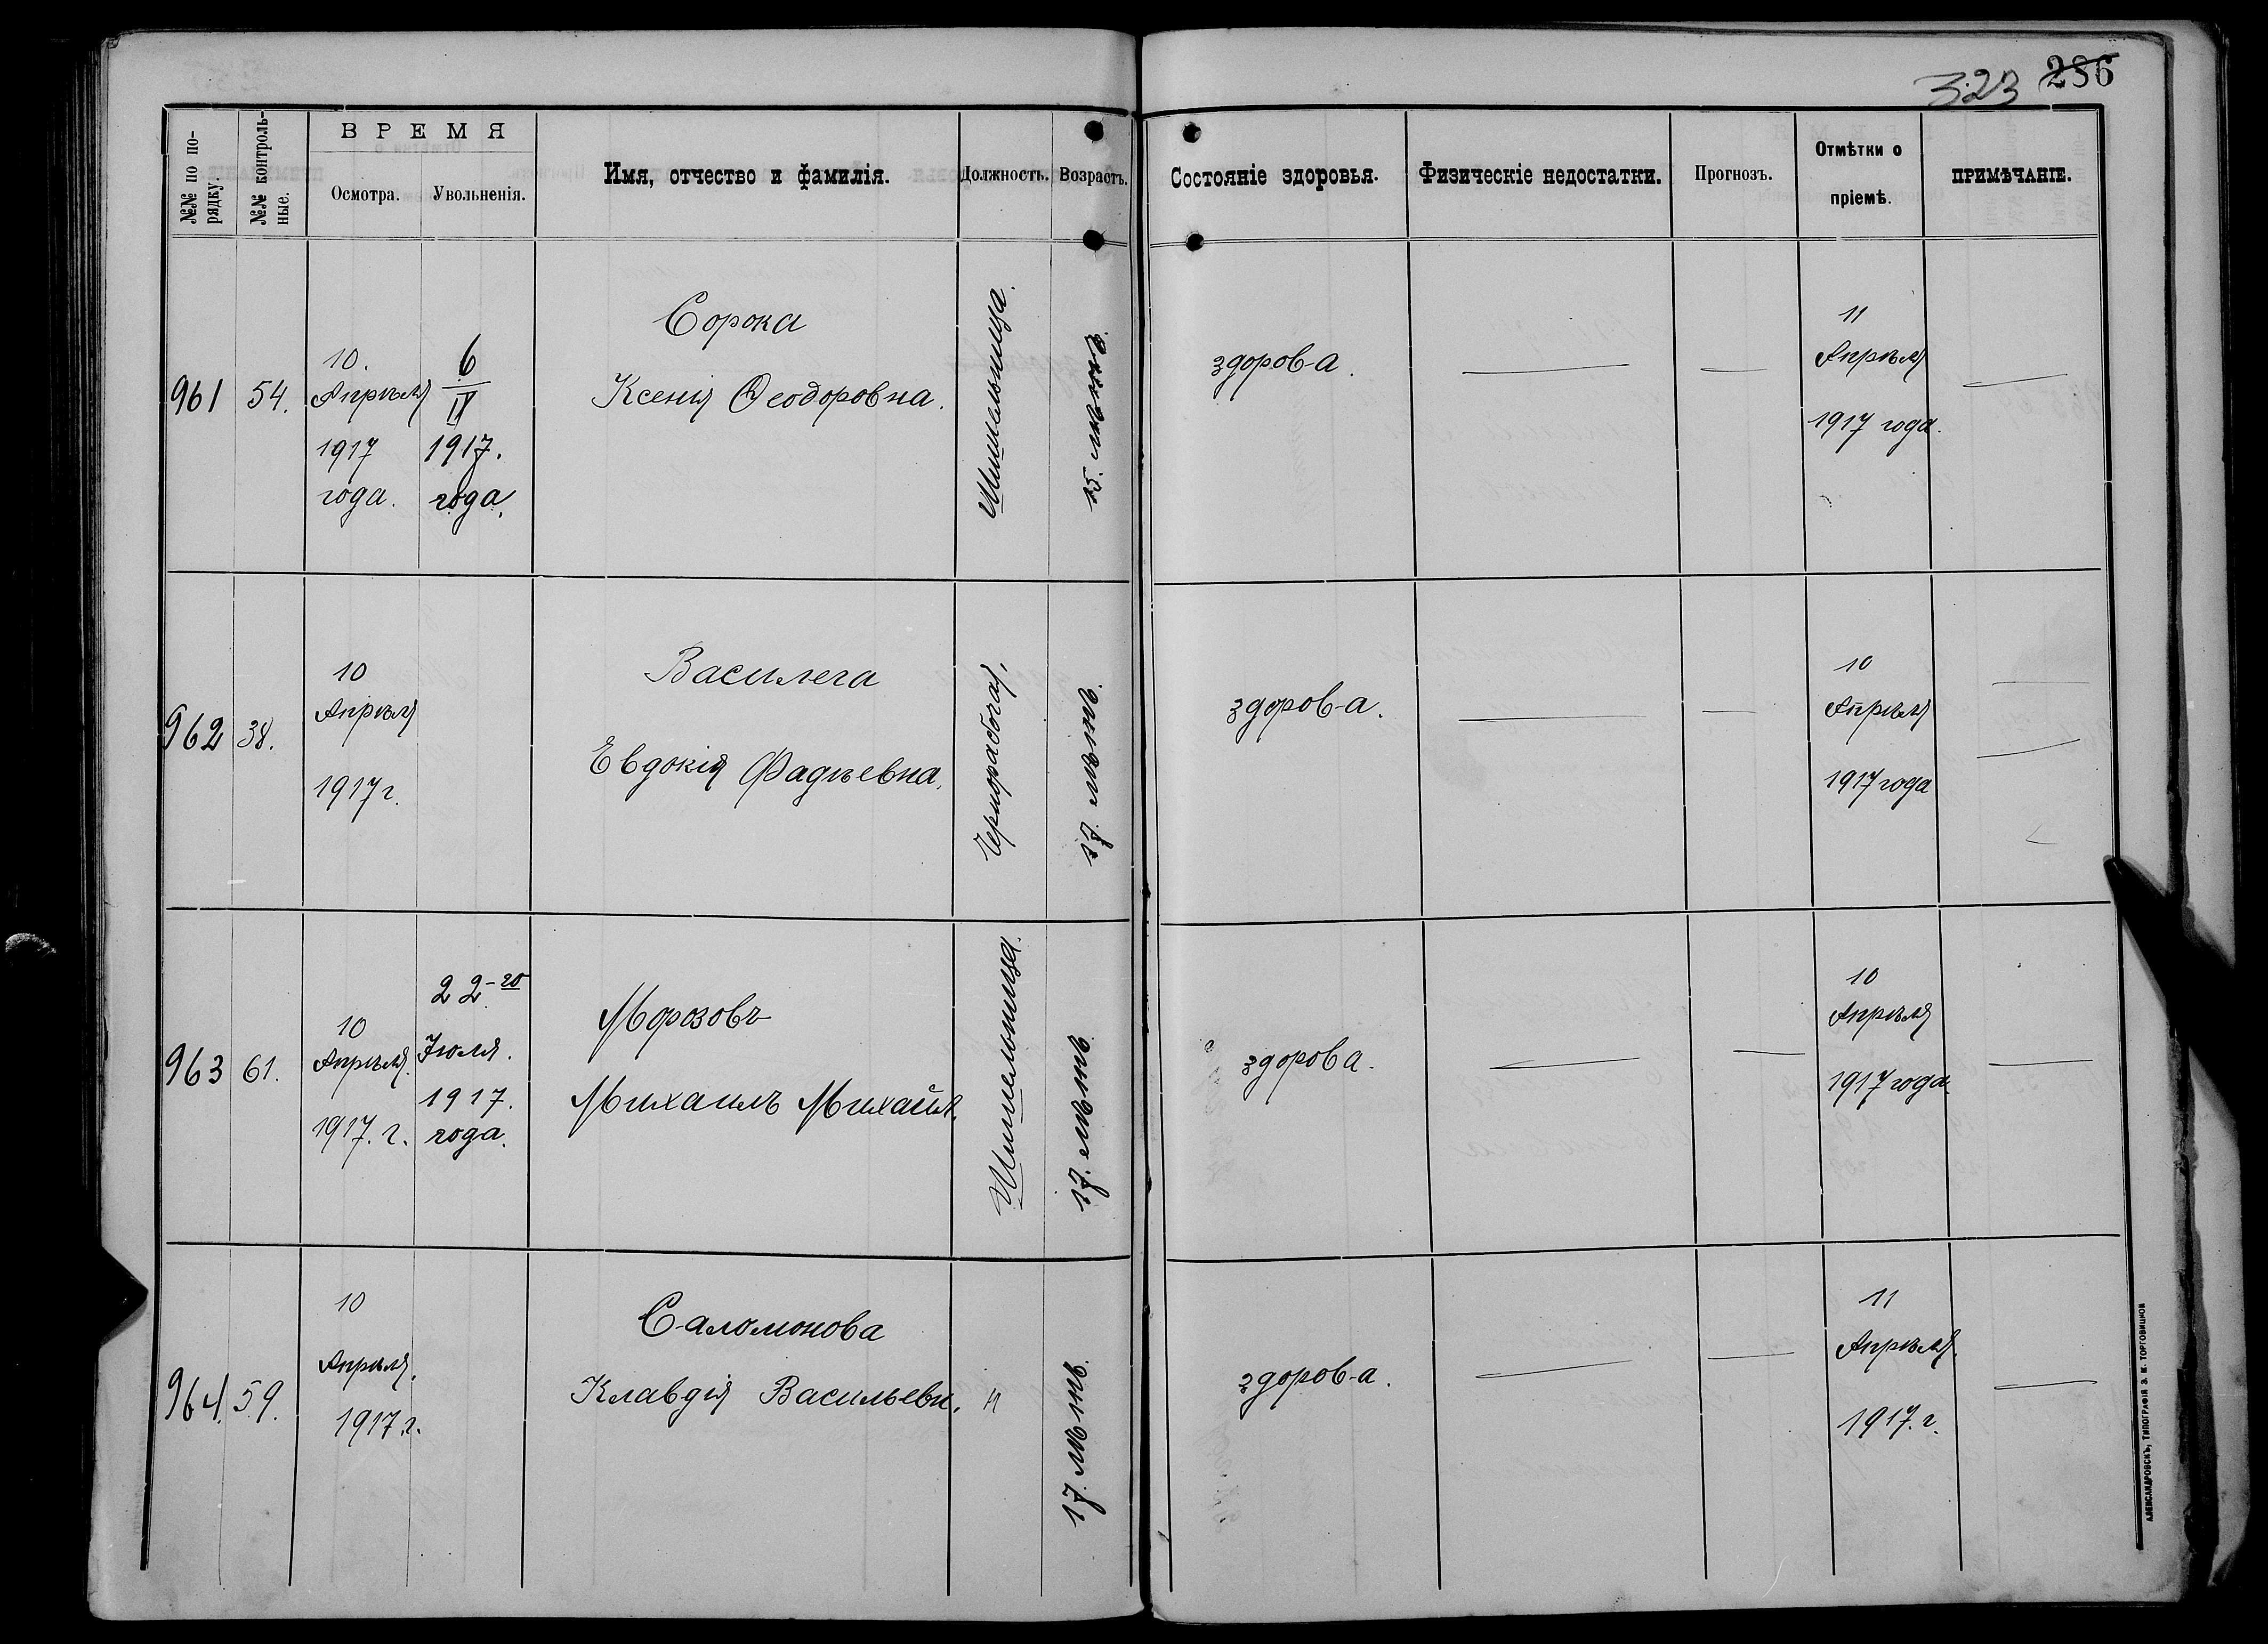 323 286
№№ по по-
рядку.
№№ контроль-
ные.
ВРЕМЯ
Осмотра.
Увольненія.
Имя, отчество и фамилія.
Должность.
Возрастъ.
Состояніе здоровья.
Физическіе недостатки.
Прогнозъ.
Отмѣтки о
пріемѣ.
ПРИМѢЧАНІЕ.
961
54.
10.
Апрѣля
1917
года.
6
IV
1917.
года.
Сорока
Ксенія Ѳеодоровна.
15. лѣтъ.
здоров-а.
11
Апрѣля
1917 года.
962
38.
10
Апрѣля
1917 г.
Василега
Евдокія Фадѣевна.
Чернорабочая,
17. лѣтъ.
здоров-а.
10
Апрѣля
1917 года
963
61.
10
Апрѣля.
1917. г.
22-го
Іюля.
1917.
года.
Морозовъ
Михаилъ Михайл.
17. лѣтъ
здорова.
10
Апрѣля
1917 года.
964.
59.
10
Апрѣля.
1917. г.
Саломонова
Клавдія Васильевн.
17. лѣтъ.
здоров-а.
11
Апрѣля.
1917. г.
АЛЕКСАНДРОВСКЪ, ТИПОГРАФІЯ Э. И. ТОРГОВИЦКОЙ